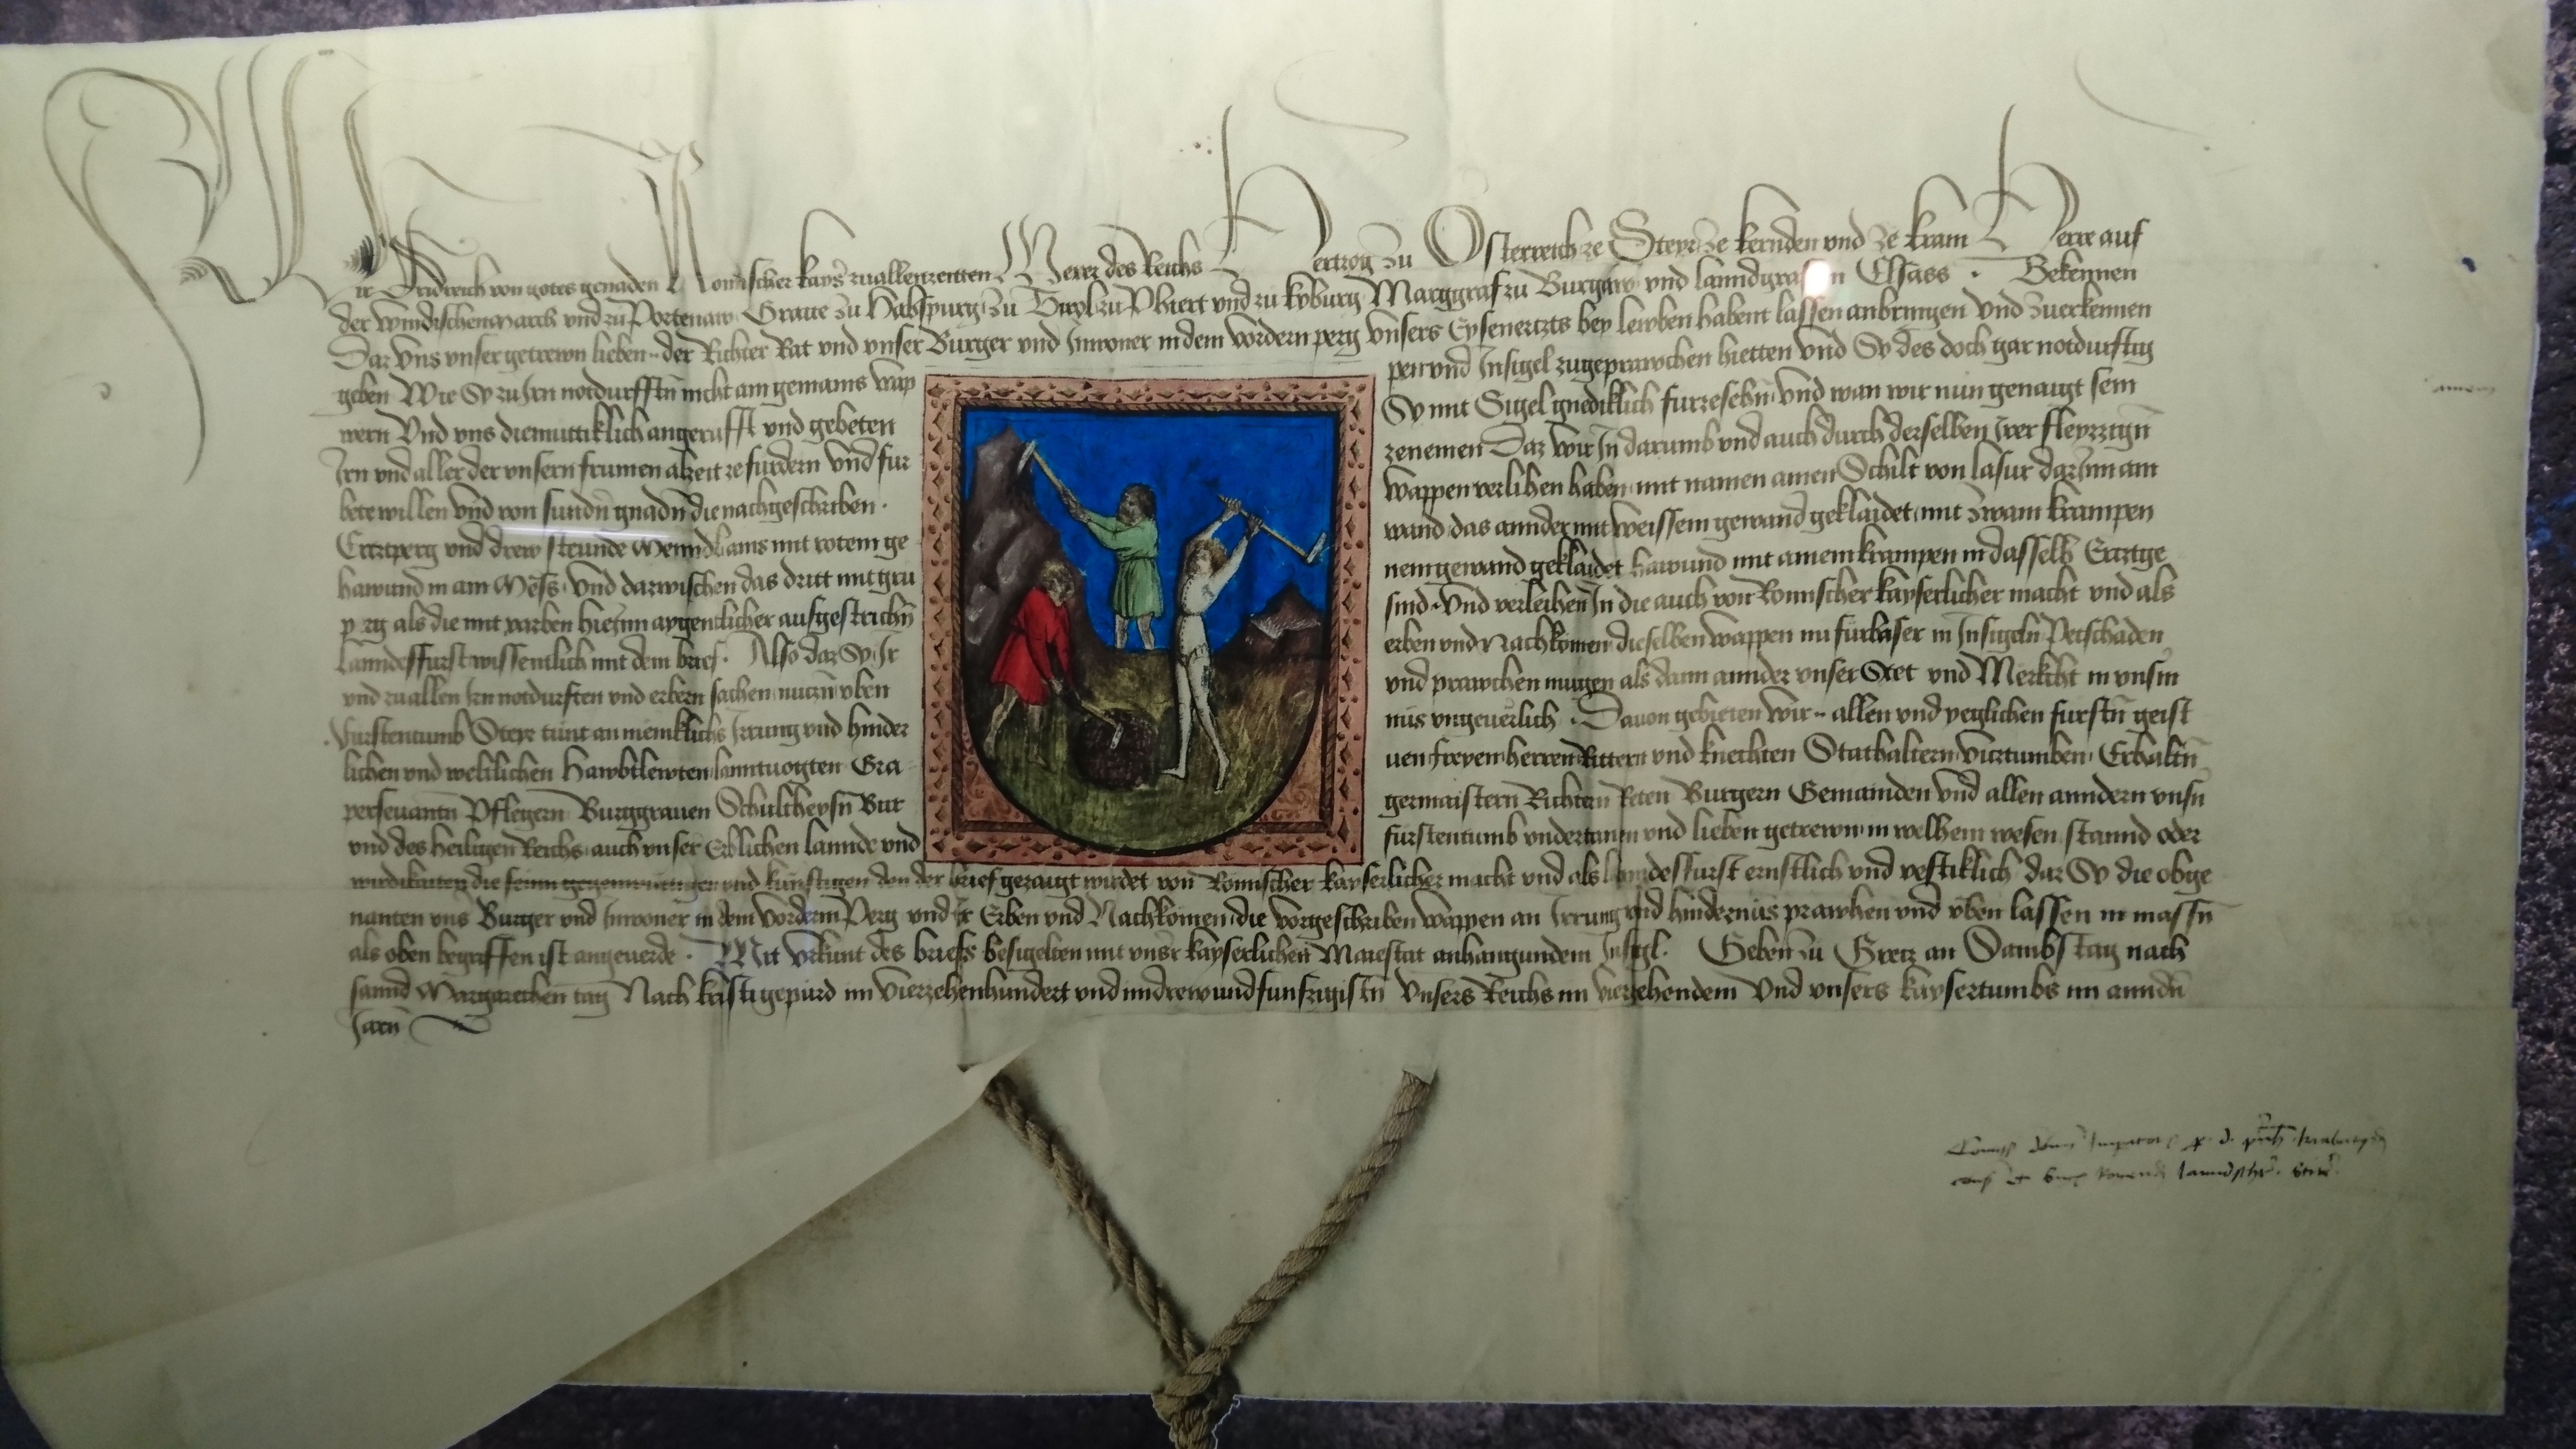 Wir Fridreich von gotes gnaden Romischer kayser zuallenzeitten Merer des Reichs Hertzog zu Osterreich ze Steyr ze kernden und ze krain Herre auf
der windischenmarch und zu Portenaw Graue zu Habspurg zu Tyrol zu Phiert und zu kyburg Marggraf zu Burgaw und lanndgraf in Elsass · Bekennen
Daz uns unser getrewn lieben der Richter Rat und unser Burger und Inwoner in dem vordern perg unsers Eysenertzts bey lewben habent lassen anbringen und zuerkennen
geben Wie Sy zu Irn notdurfftn nicht ain gemains wap
pen und Insigel zugeprawchen hietten und Sy des doch gar notdurftig
wern Und uns diemuttiklich angerufft und gebeten
Sy mit Sigel gnediklich furzesehn und wan wir nun genaigt sein
Irn und aller der unsern frumen alzeit ze furdern und fur
zenemen Daz wir In darumb und auch durch derselben Irer fleyzzign
bete willen und von sundn gnadn die nachgeschriben ·
wappen verlihen haben mit namen ainen Schilt von lasur darinn ain
Ertzperg und drew steunde Menndlains mit rotem ge
wand das annder mit weissem gewand geklaidet mit zwain krampen
hawund in ain Mess und dazwischen das dritt mit gru
nem gewand geklaidet hawund mit ainem krampen in dasselb Ertztge
perg als die mit varben hierinn aygentlicher ausgestrichn
sind · Und verleihen In die auch von Romischer kayserlicher macht und als
lanndesfurst wissentlich mit dem brief · Also daz Sy Ir
erben und Nachkomen dieselben wappen nu furbaser in Insigeln Petschaden
und zu allen Irn notdurften und erbern sachen nutzn uben
und prawchen mugen als dann annder unser Stet und Merkcht in unsm
Furstentumb Steyr tunt an meniklichs Irrung und hinder
nüs ungeuerlich · Dauon gebieten wir allen und yeglichen fursten geist
lichen und weltlichen Hawbtlewten lanntuogten Gra
uen freyen herren Rittern und knechten Stathaltern viztumben
perseuantn Pflegern Burggrauen Schultheysn Bur
germaistern Richtern Reten Burgern Gemainden und allen anndern unsn
und des Heiligen Reichs auch unser Erblichen lannde und
furstentumb undertanen und lieben getrewn in welhem wesen stannd oder
die und kunftigen den der brief gezaigt wirdet von Romischer kayserlicher macht und als lanndesfurst ernstlich und vestiklich daz Sy die obge
nanten uns Burger und Inwoner in dem Vordern Perg und ir Erben und Nachkomen die vorgeschriben wappen an Irrung und hindernüs prawhen und uben lassen in massn
als oben begriffen ist angeuerde · Mit Urkunt des briefs besigelten mit unser kayserlichen Maiestat anhangundem Insigl · Geben zu Gretz an Sambstag nach
sannd Margarethen tag Nach kristi gepurd im Vierzehenhundert und im drewundfunfzigistn Unsers Reichs im vierzehendem Und unsers kaysertumbs im anndn
Jaren